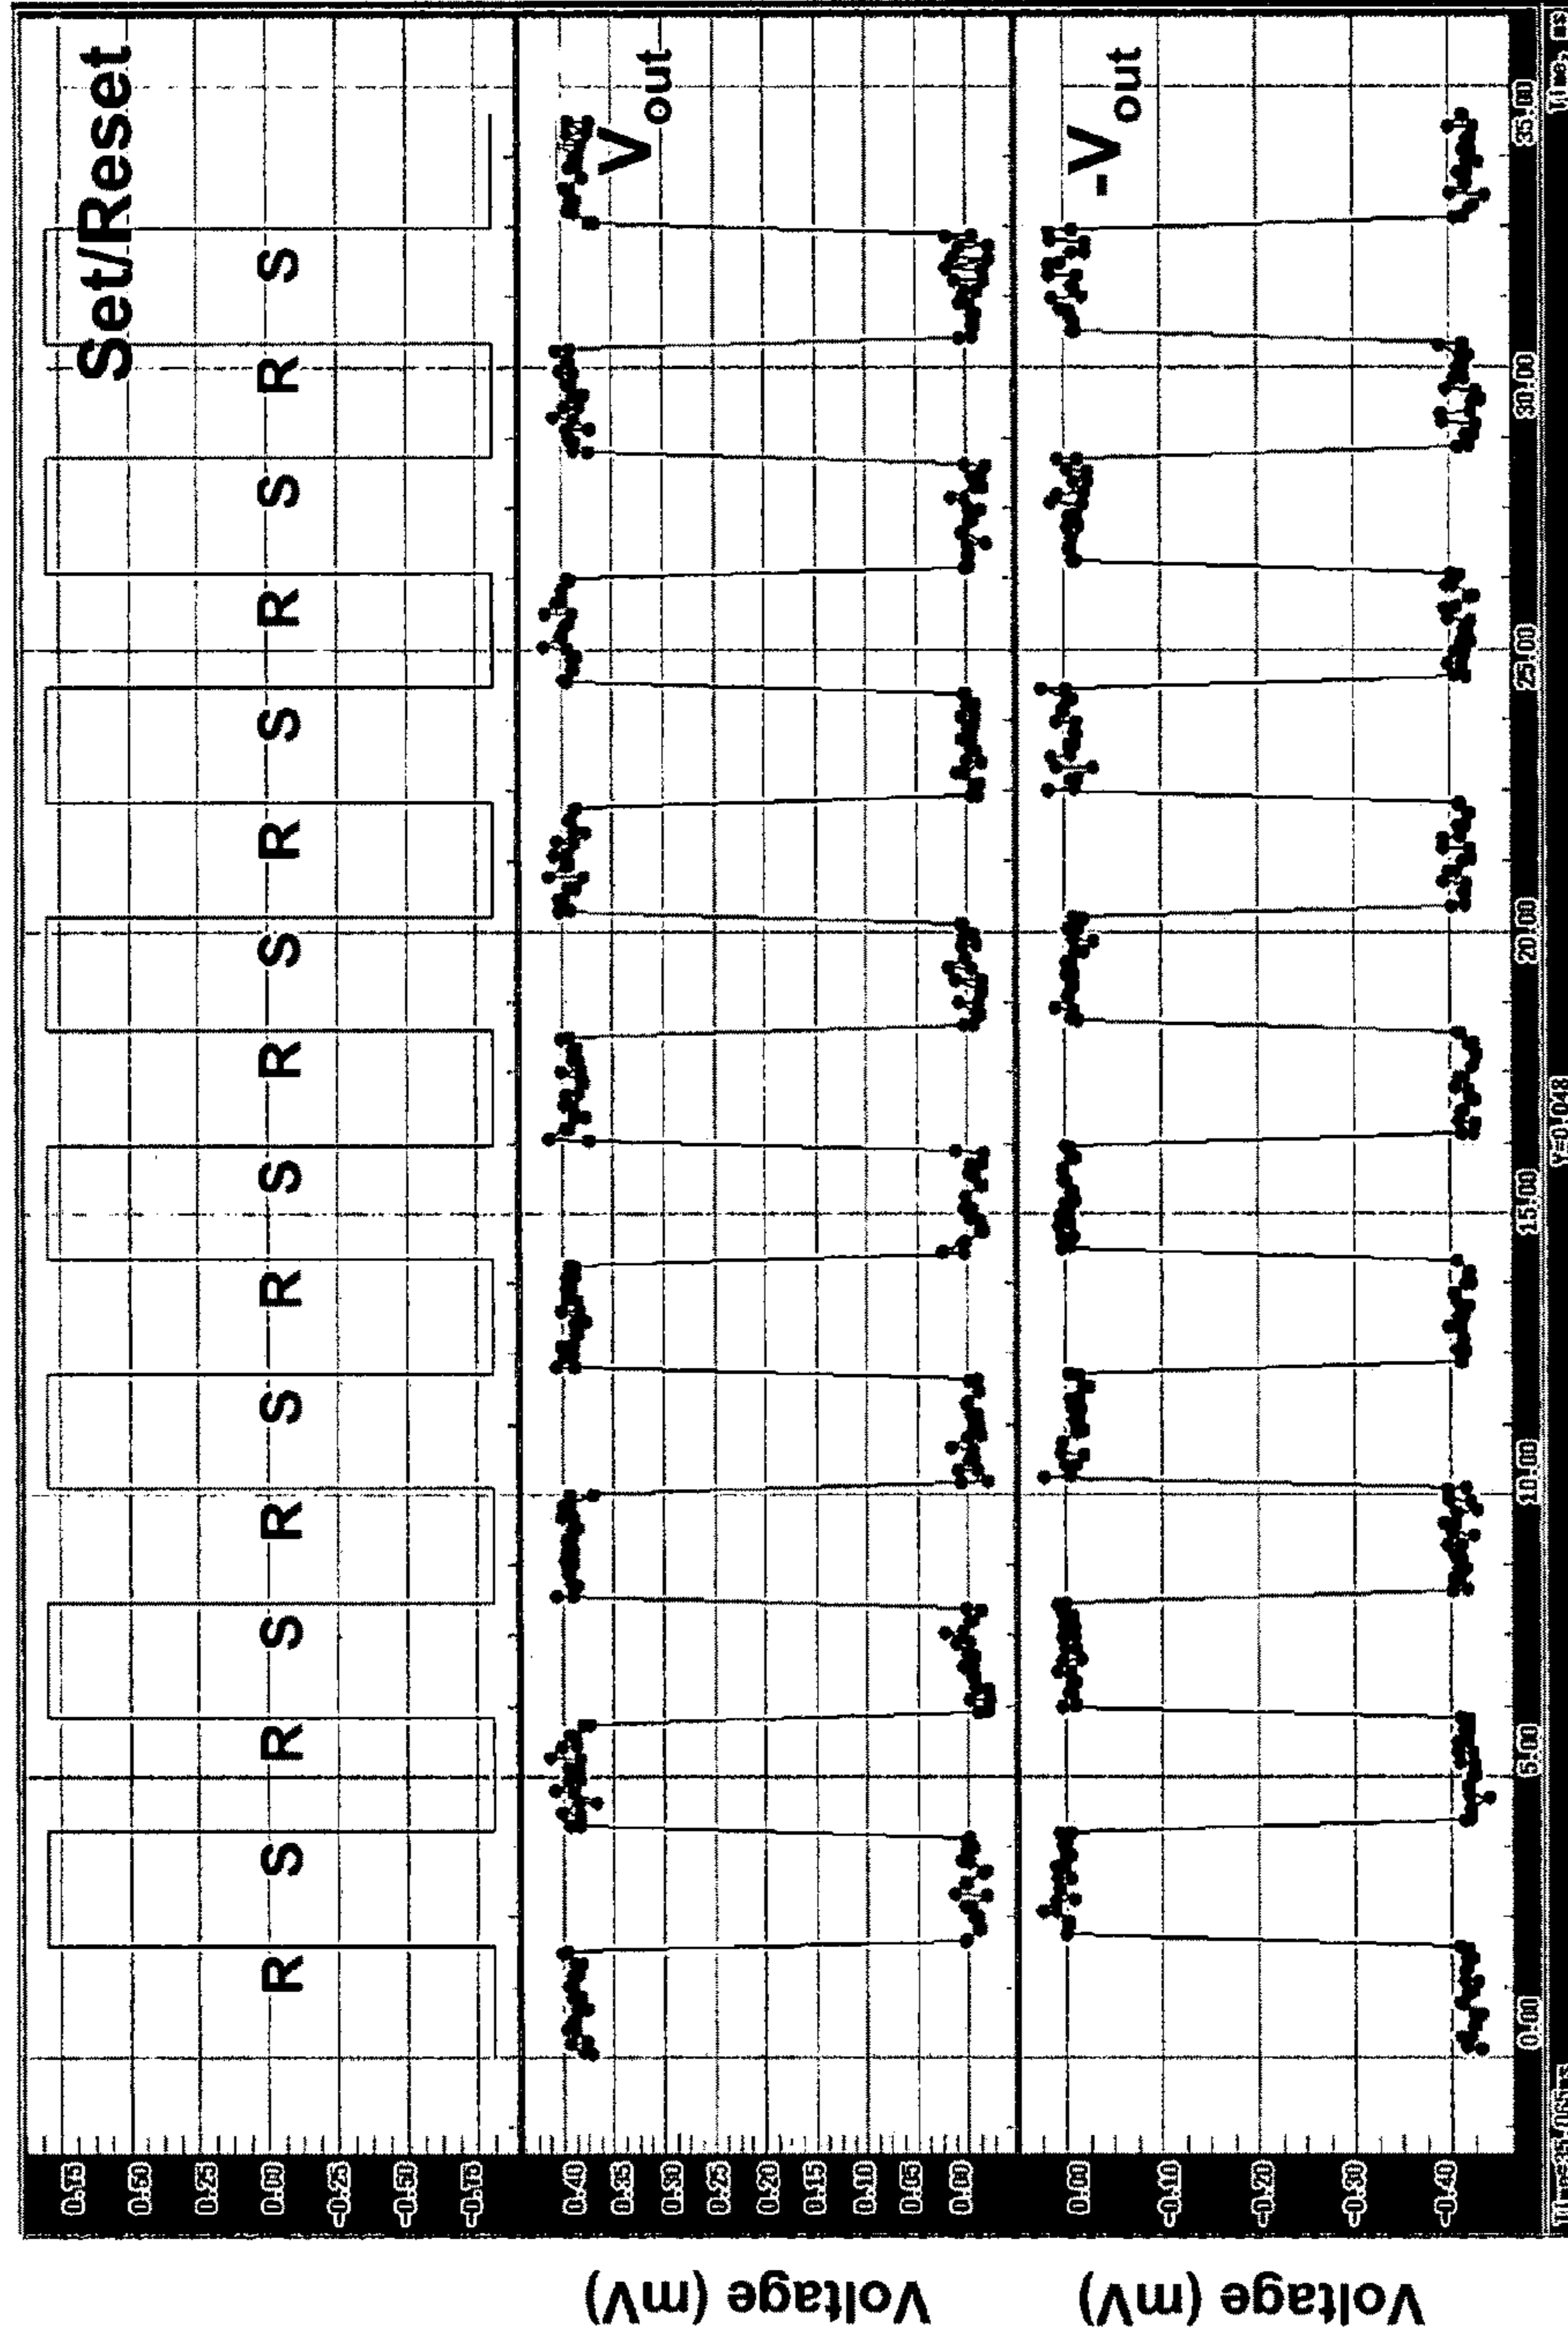 Set/Reset
R S R S R S R S R S R S R S R S
0.75
0.50
0.25
0.00
-0.25
-0.50
-0.75
V out
Voltage (mV)
0.40
0.35
0.30
0.25
0.20
0.15
0.10
0.05
0.00
-V out
Voltage (mV)
0.00
-0.10
-0.20
-0.30
-0.40
0.00 5.00 10.00 15.00 20.00 25.00 30.00 35.00
Time=35.065ms Y=0.048 Time, ms